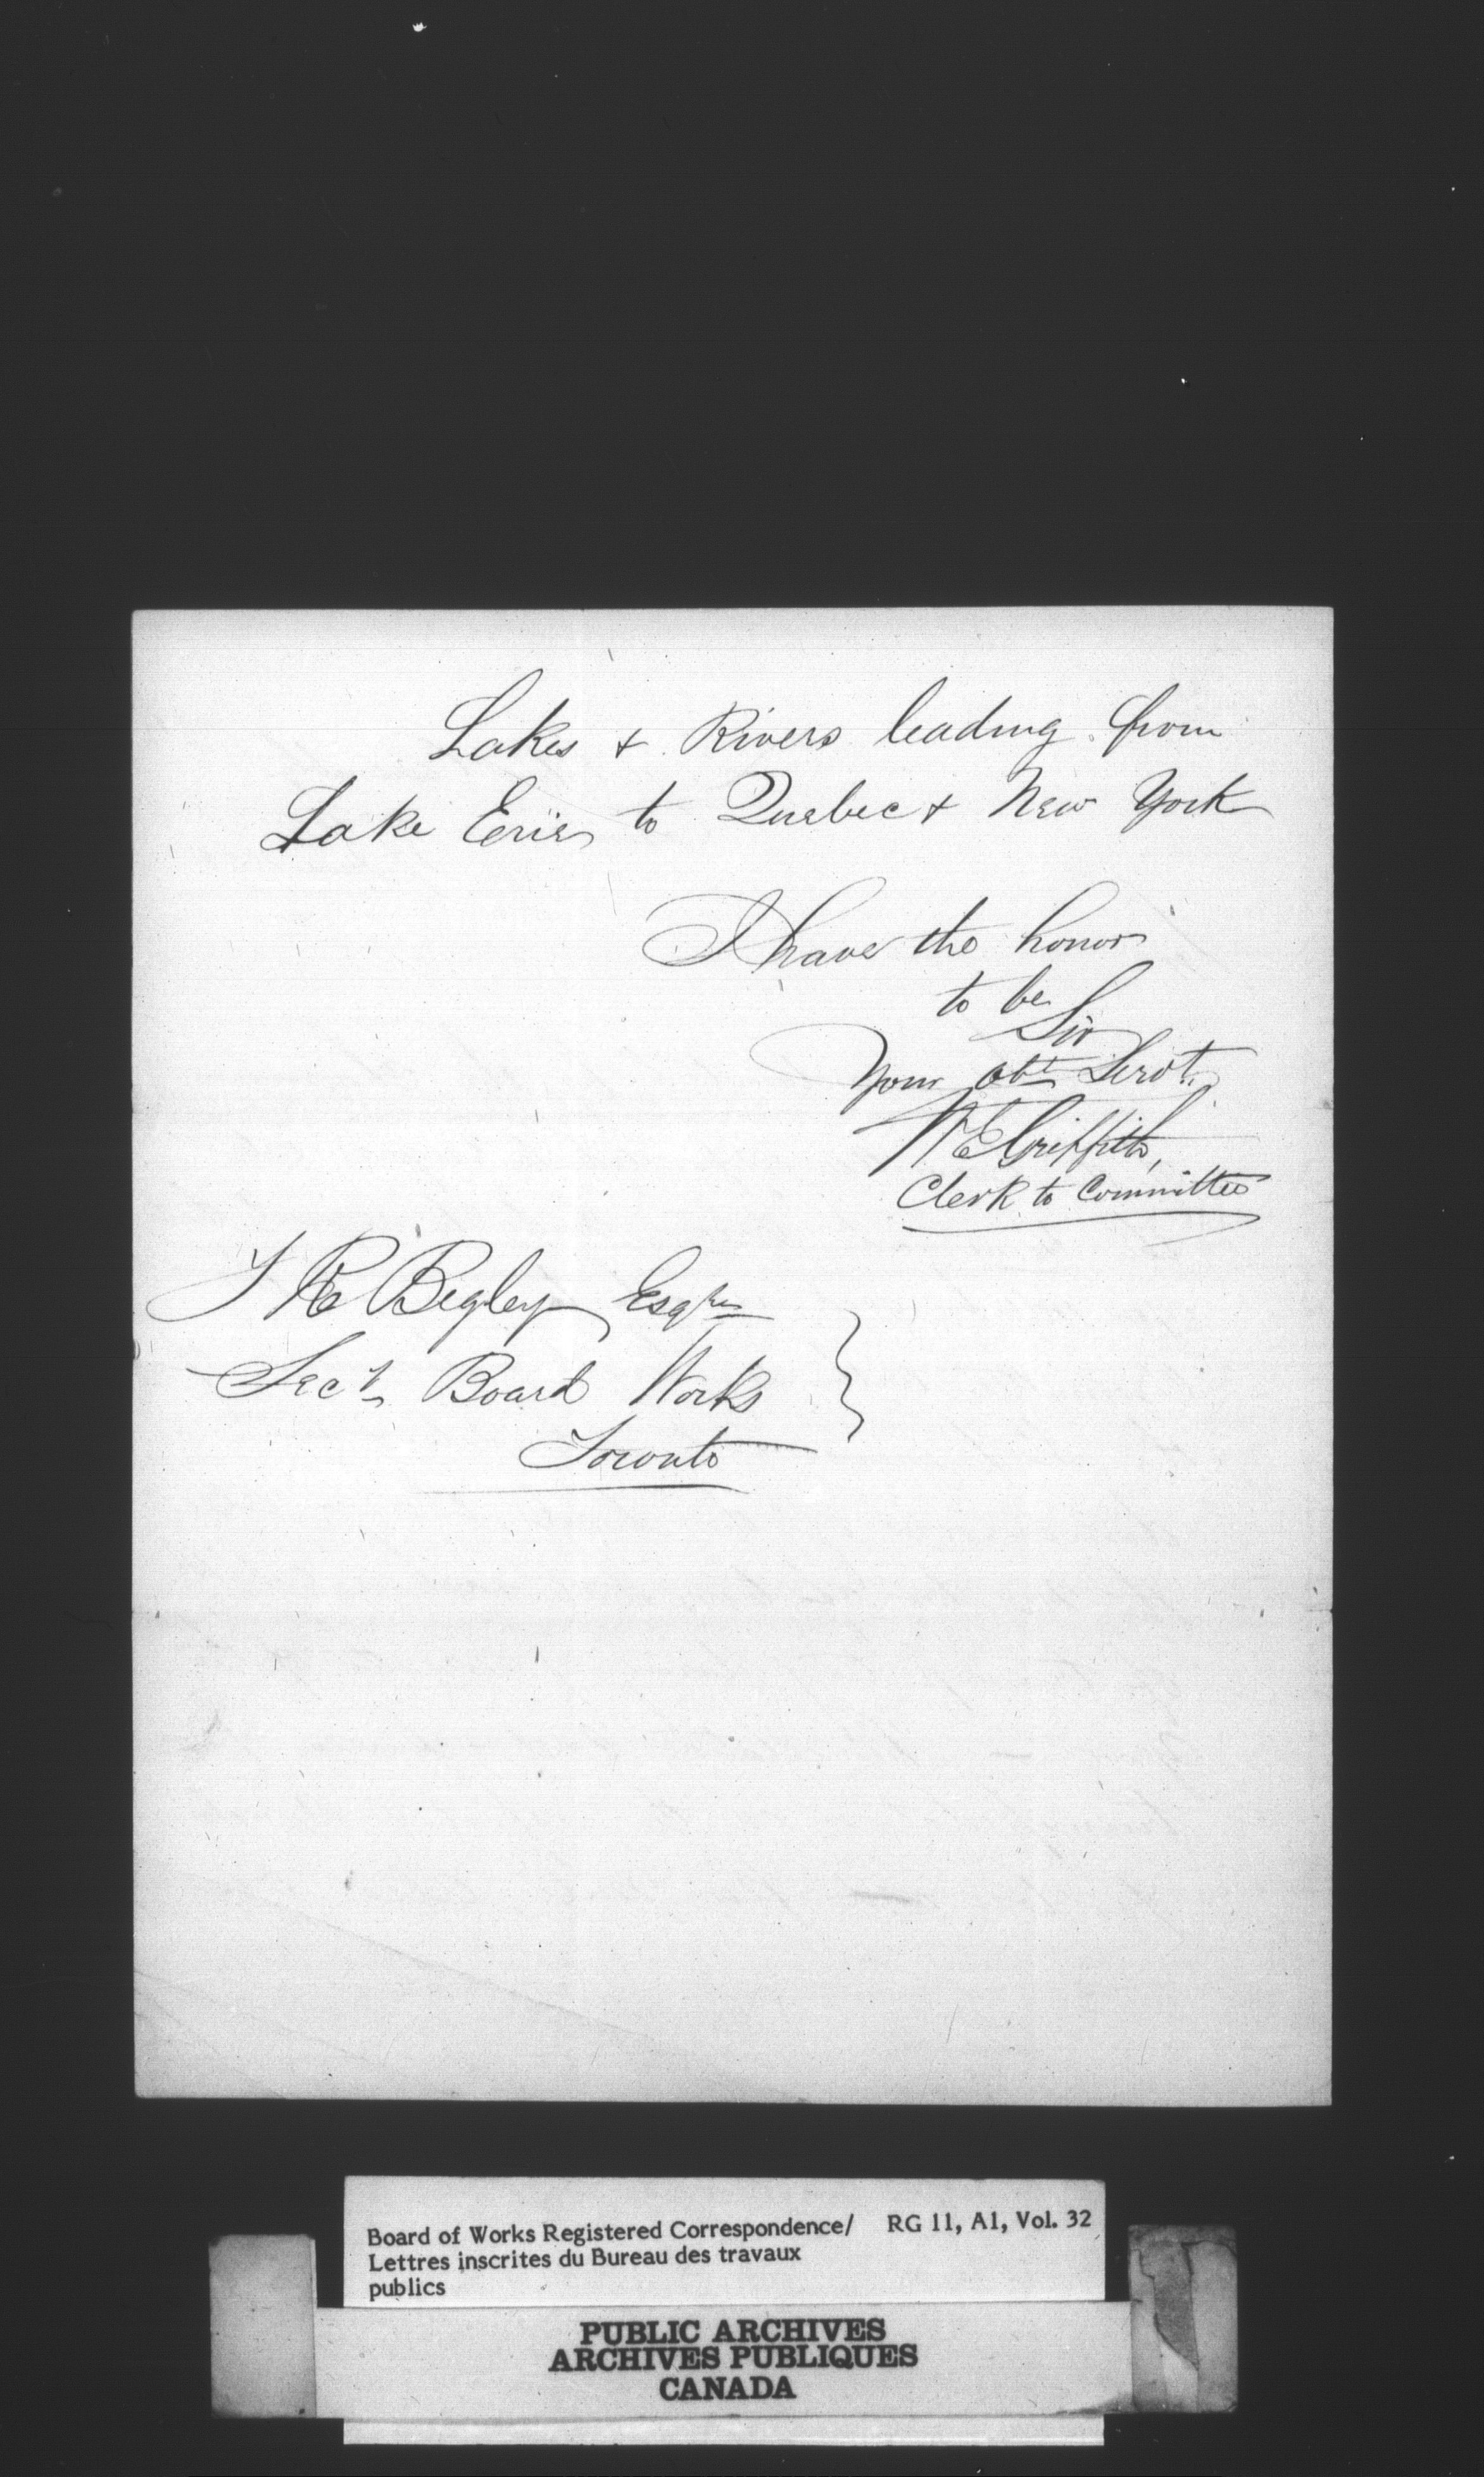 Lakes & Rivers leading from
Lake Erie to Quebec & New York
I have the honor
to be
Sir
Your obt Servt.
Griffith,
Clerk to Committee
T A Begley Esqre
Secy Board Works
Toronto
Board of Works Registered Correspondence/ RG 11, A1, Vol. 32
Lettres inscrites du Bureau des travaux
publics
PUBLIC ARCHIVES
ARCHIVES PUBLIQUES
CANADA